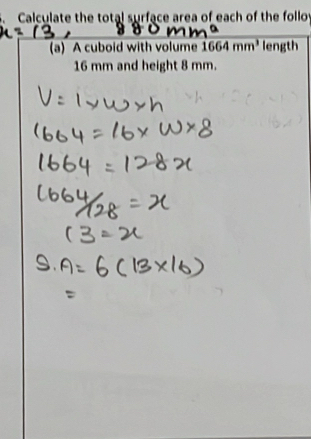 . Calculate the total surface area of each of the follo
x = 13, 880 mm²
(a) A cuboid with volume 1664 mm³ length
16 mm and height 8 mm.
V = l x w x h
1664 = 16 x W x 8
1664 = 128x
1664/128 = x
13 = x
S.A = 6 (13 x 16)
=